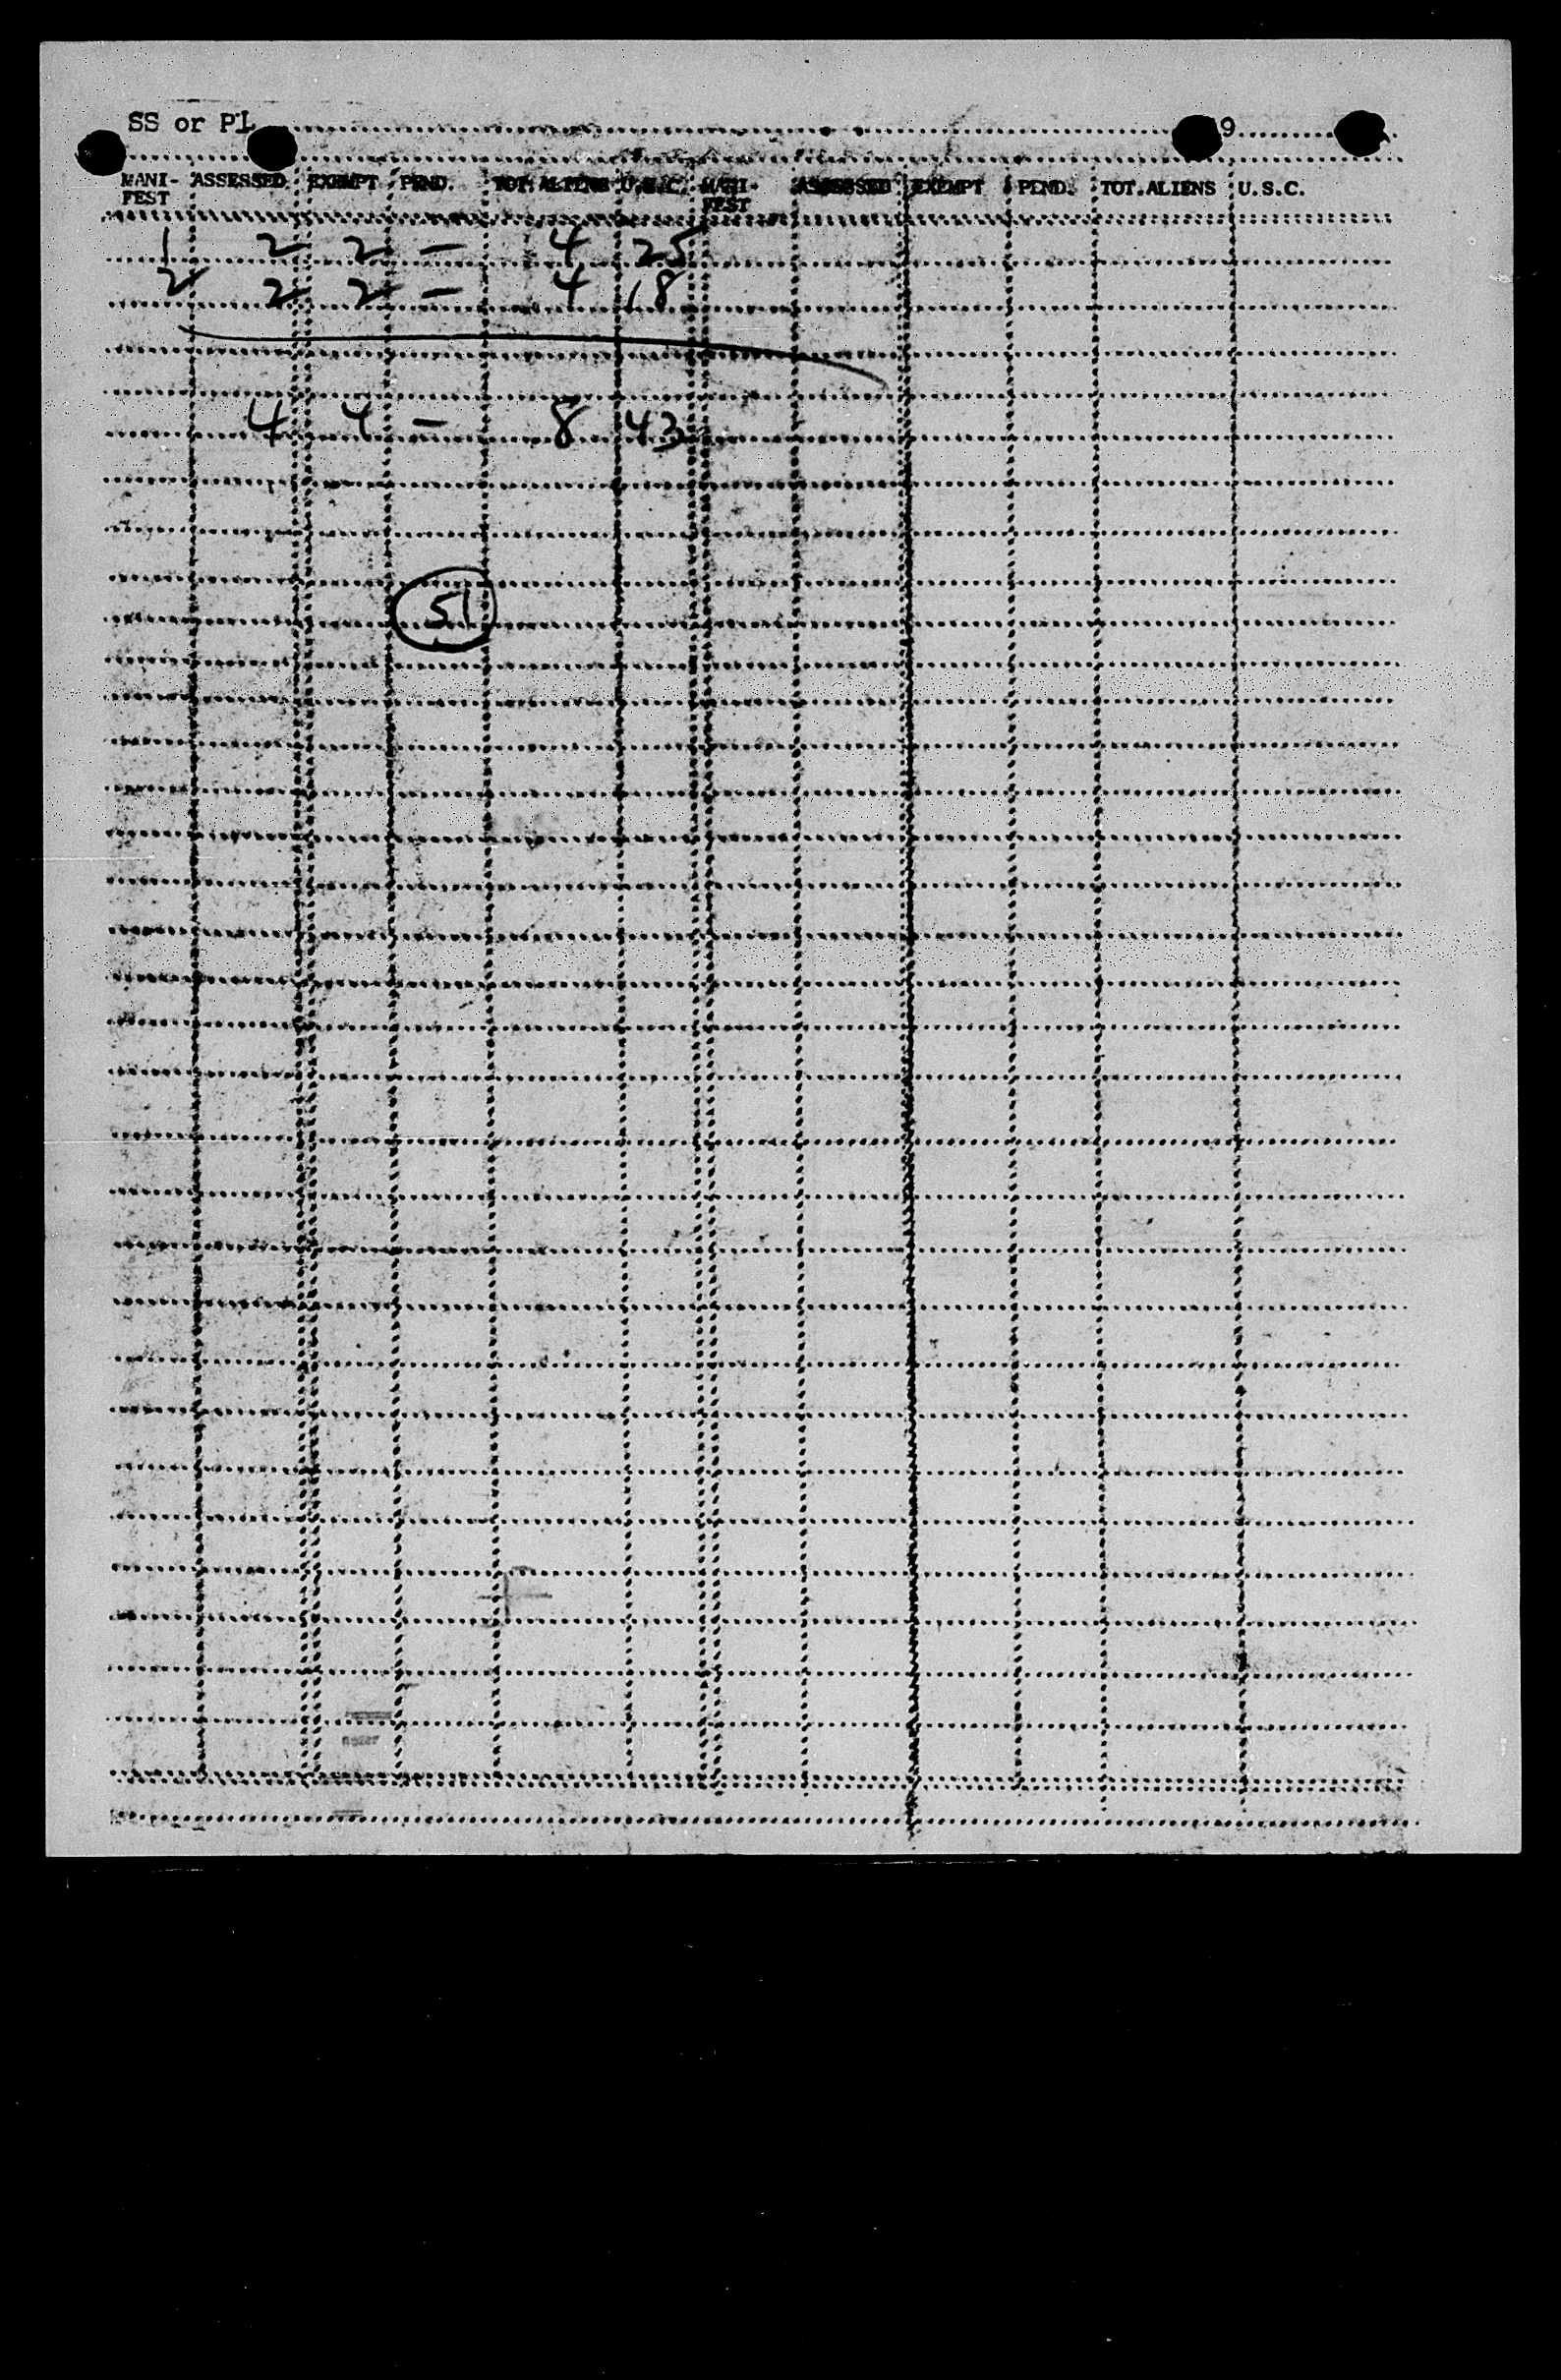 SS or PL 9
MANI-FEST ASSESSED EXEMPT PEND. TOT.ALIENS U.S.C. MANI-FEST ASSESSED EXEMPT PEND. TOT.ALIENS U.S.C.
1 2 2 - 4 25
2 2 2 - 4 18
4 4 - 8 43
51